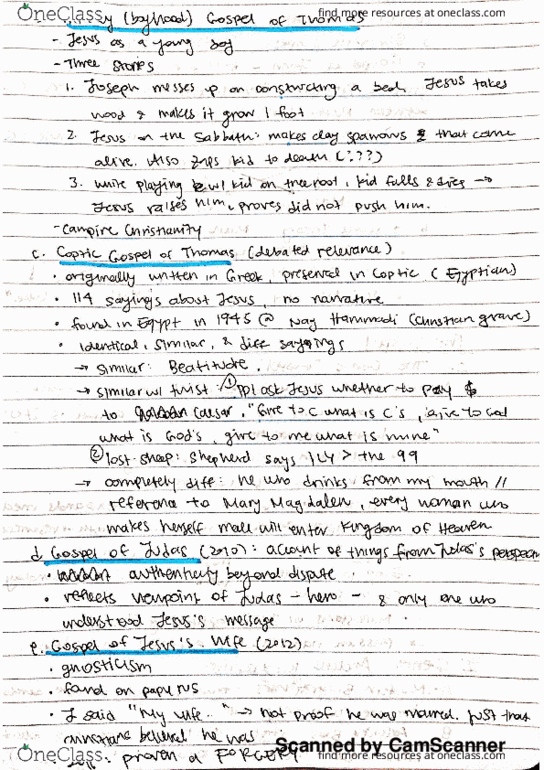 OneClass
find more resources at oneclass.com
(boyhood) Gospel of Thomas
- Jesus as a young boy
- Three stories
1. Joseph messes up on constructing a bed. Jesus takes
wood & makes it grow 1 foot
2. Jesus on the Sabbath: makes clay sparrows & that come
alive. Also zaps kid to death (???)
3. while playing w/ kid on tree root, kid falls & dies →
Jesus raises him, proves did not push him.
- Campfire Christianity
c. Coptic Gospel of Thomas (debated relevance)
• originally written in Greek, preserved in Coptic (Egyptian)
• 114 sayings about Jesus, no narrative
• found in Egypt in 1945 @ Nag Hammadi (Christian grave)
• identical, similar, & diff sayings
→ similar: Beatitude.
→ similar w/ twist ① ppl ask Jesus whether to pay $
to Caesar. "Give to C what is C's, give to God
what is God's, give to me what is mine"
② lost sheep: shepherd says ILY > the 99
→ completely diff: he who drinks from my mouth //
reference to Mary Magdalen, every woman who
makes herself male will enter Kingdom of Heaven
d. Gospel of Judas (2010): account of things from Judas's
• authenticity beyond dispute
• reflects viewpoint of Judas - hero - & only one who
understood Jesus's message
e. Gospel of Jesus's Wife (2012)
• gnosticism
• found on papyrus
• J said "My wife.." → not proof he was married. Just that
believed he was
proven a FORGERY
Scanned by CamScanner
OneClass
find more resources at oneclass.com